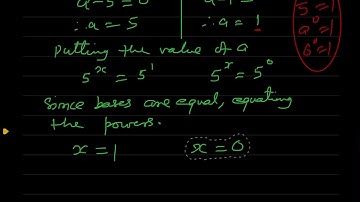 a-5=0 a-1=0
∴a=5 ∴a=1
Putting the value of a
5^x = 5^1 5^x = 5^0
Since bases are equal, equating
the powers.
x=1 x=0
5^0=1
a^0=1
6^0=1